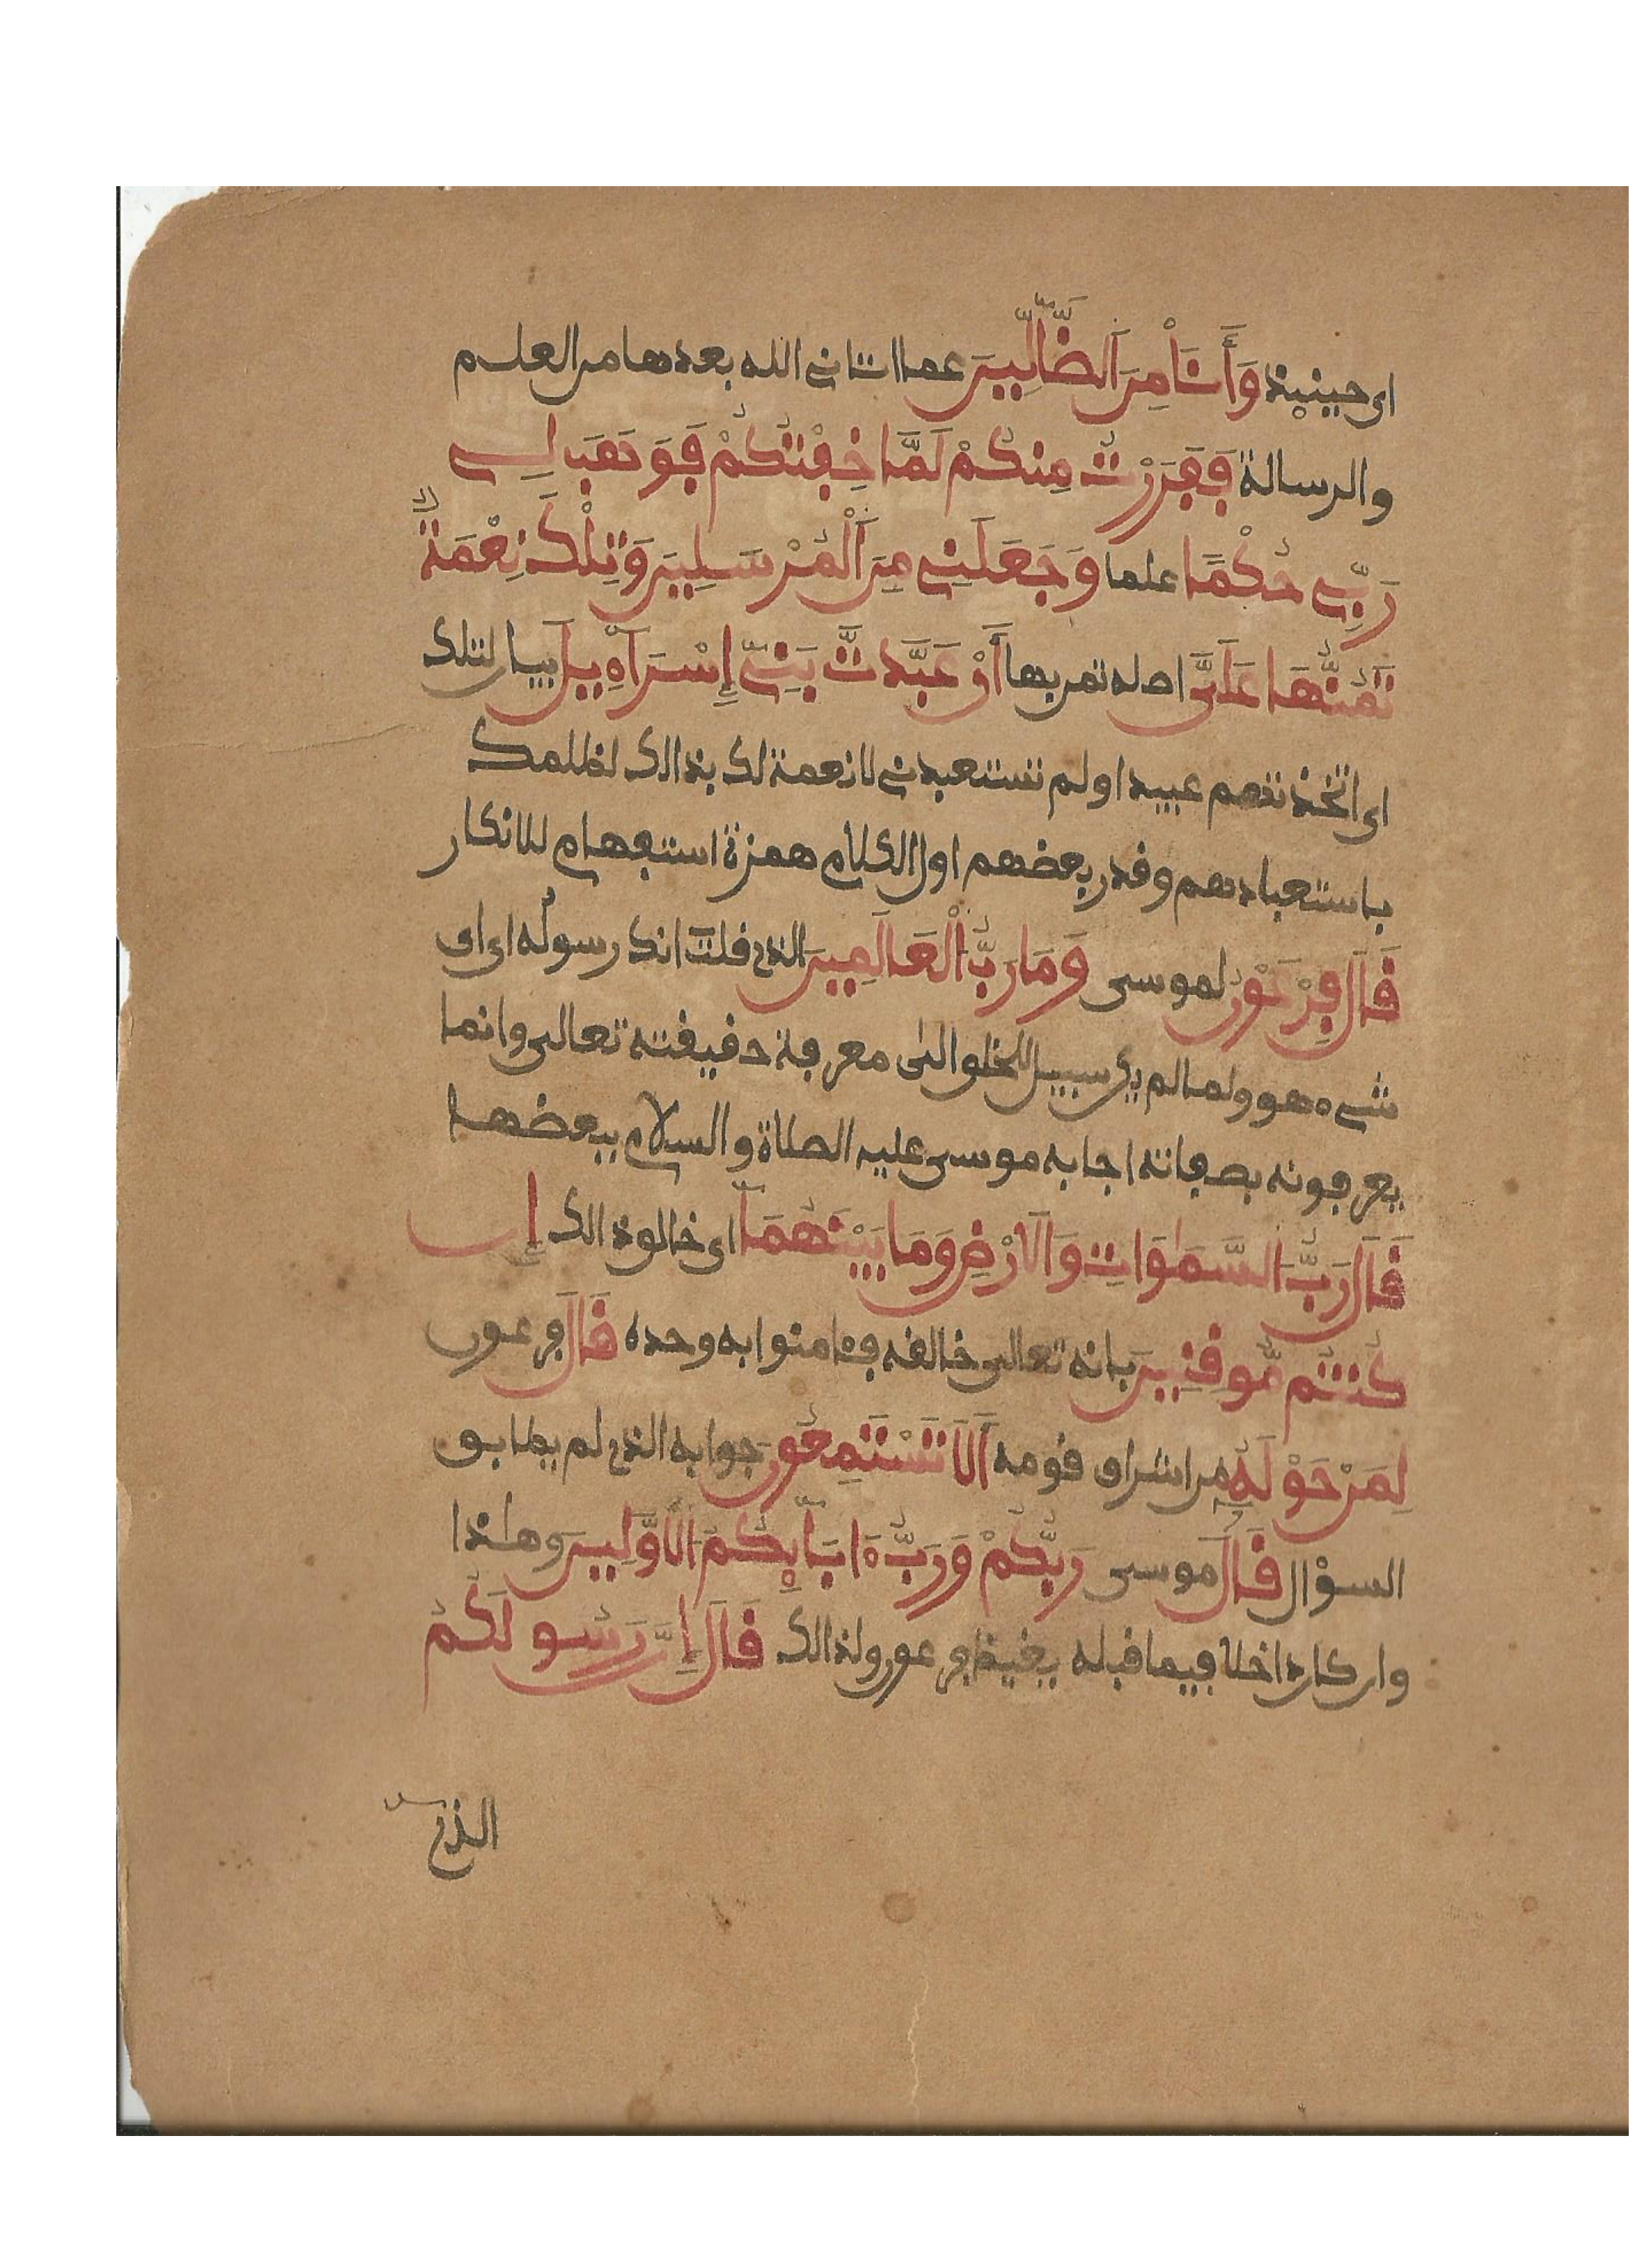 اى حينيذ وَأَنَا مِنَ اَلضَّالِّينَ عما اتانى الله بعدها من العلم
والرسالة فَفَرَرْتُ مِنكُمْ لَمَّا خِفْتُكُمْ فَوَهَبَ لِى
رَبِّى حُكْمًا علما وَجَعَلَنِى مِنَ اَلْمُرْسَلِينَ وَتِلْكَ نِعْمَةٌ
تَمُنُّهَا عَلَىَّ اصله تمن بها أَنْ عَبَّدتَّ بَنِى إِسْرَآءِيلَ بيان لتلك
اى اتخذتهم عبيدا ولم تستعبدنى لا نعمة لك بذالك لظلمك
باستعبادهم وقدر بعضهم اول الكلام همزة استفهام للانكار
قَالَ فِرْعَوْنُ لموسى وَمَا رَبُّ اَلْعَالَمِينَ الذى قلت انك رسوله اى اى
شىء هو ولما لم يكن سبيل للخلق الى معرفة حقيقته تعالى وانما
يعرفونه بصفاته اجابه موسى عليه الصلاة والسلام ببعضها
قَالَ رَبُّ السَّمَٰوَاتِ وَالَارْضِ وَمَا بَيْنَهُمَا اى خالق ذالك إِن
كُنتُم مُّوقِنِينَ بانه تعالى خالقه فءامنوا به وحده قَالَ فرعون
لِمَنْ حَوْلَهُ من اشراف قومه أَلَا تَسْتَمِعُونَ جوابه الذى لم يطابق
السؤال قَالَ موسى رَبُّكُمْ وَرَبُّ ءَابَآيِكُمُ الَاوَّلِينَ وهذا
وان كان داخلا فيما قبله يغيظ فرعون ولذالك قَالَ إِنَّ رَسُولَكُمُ
الذى